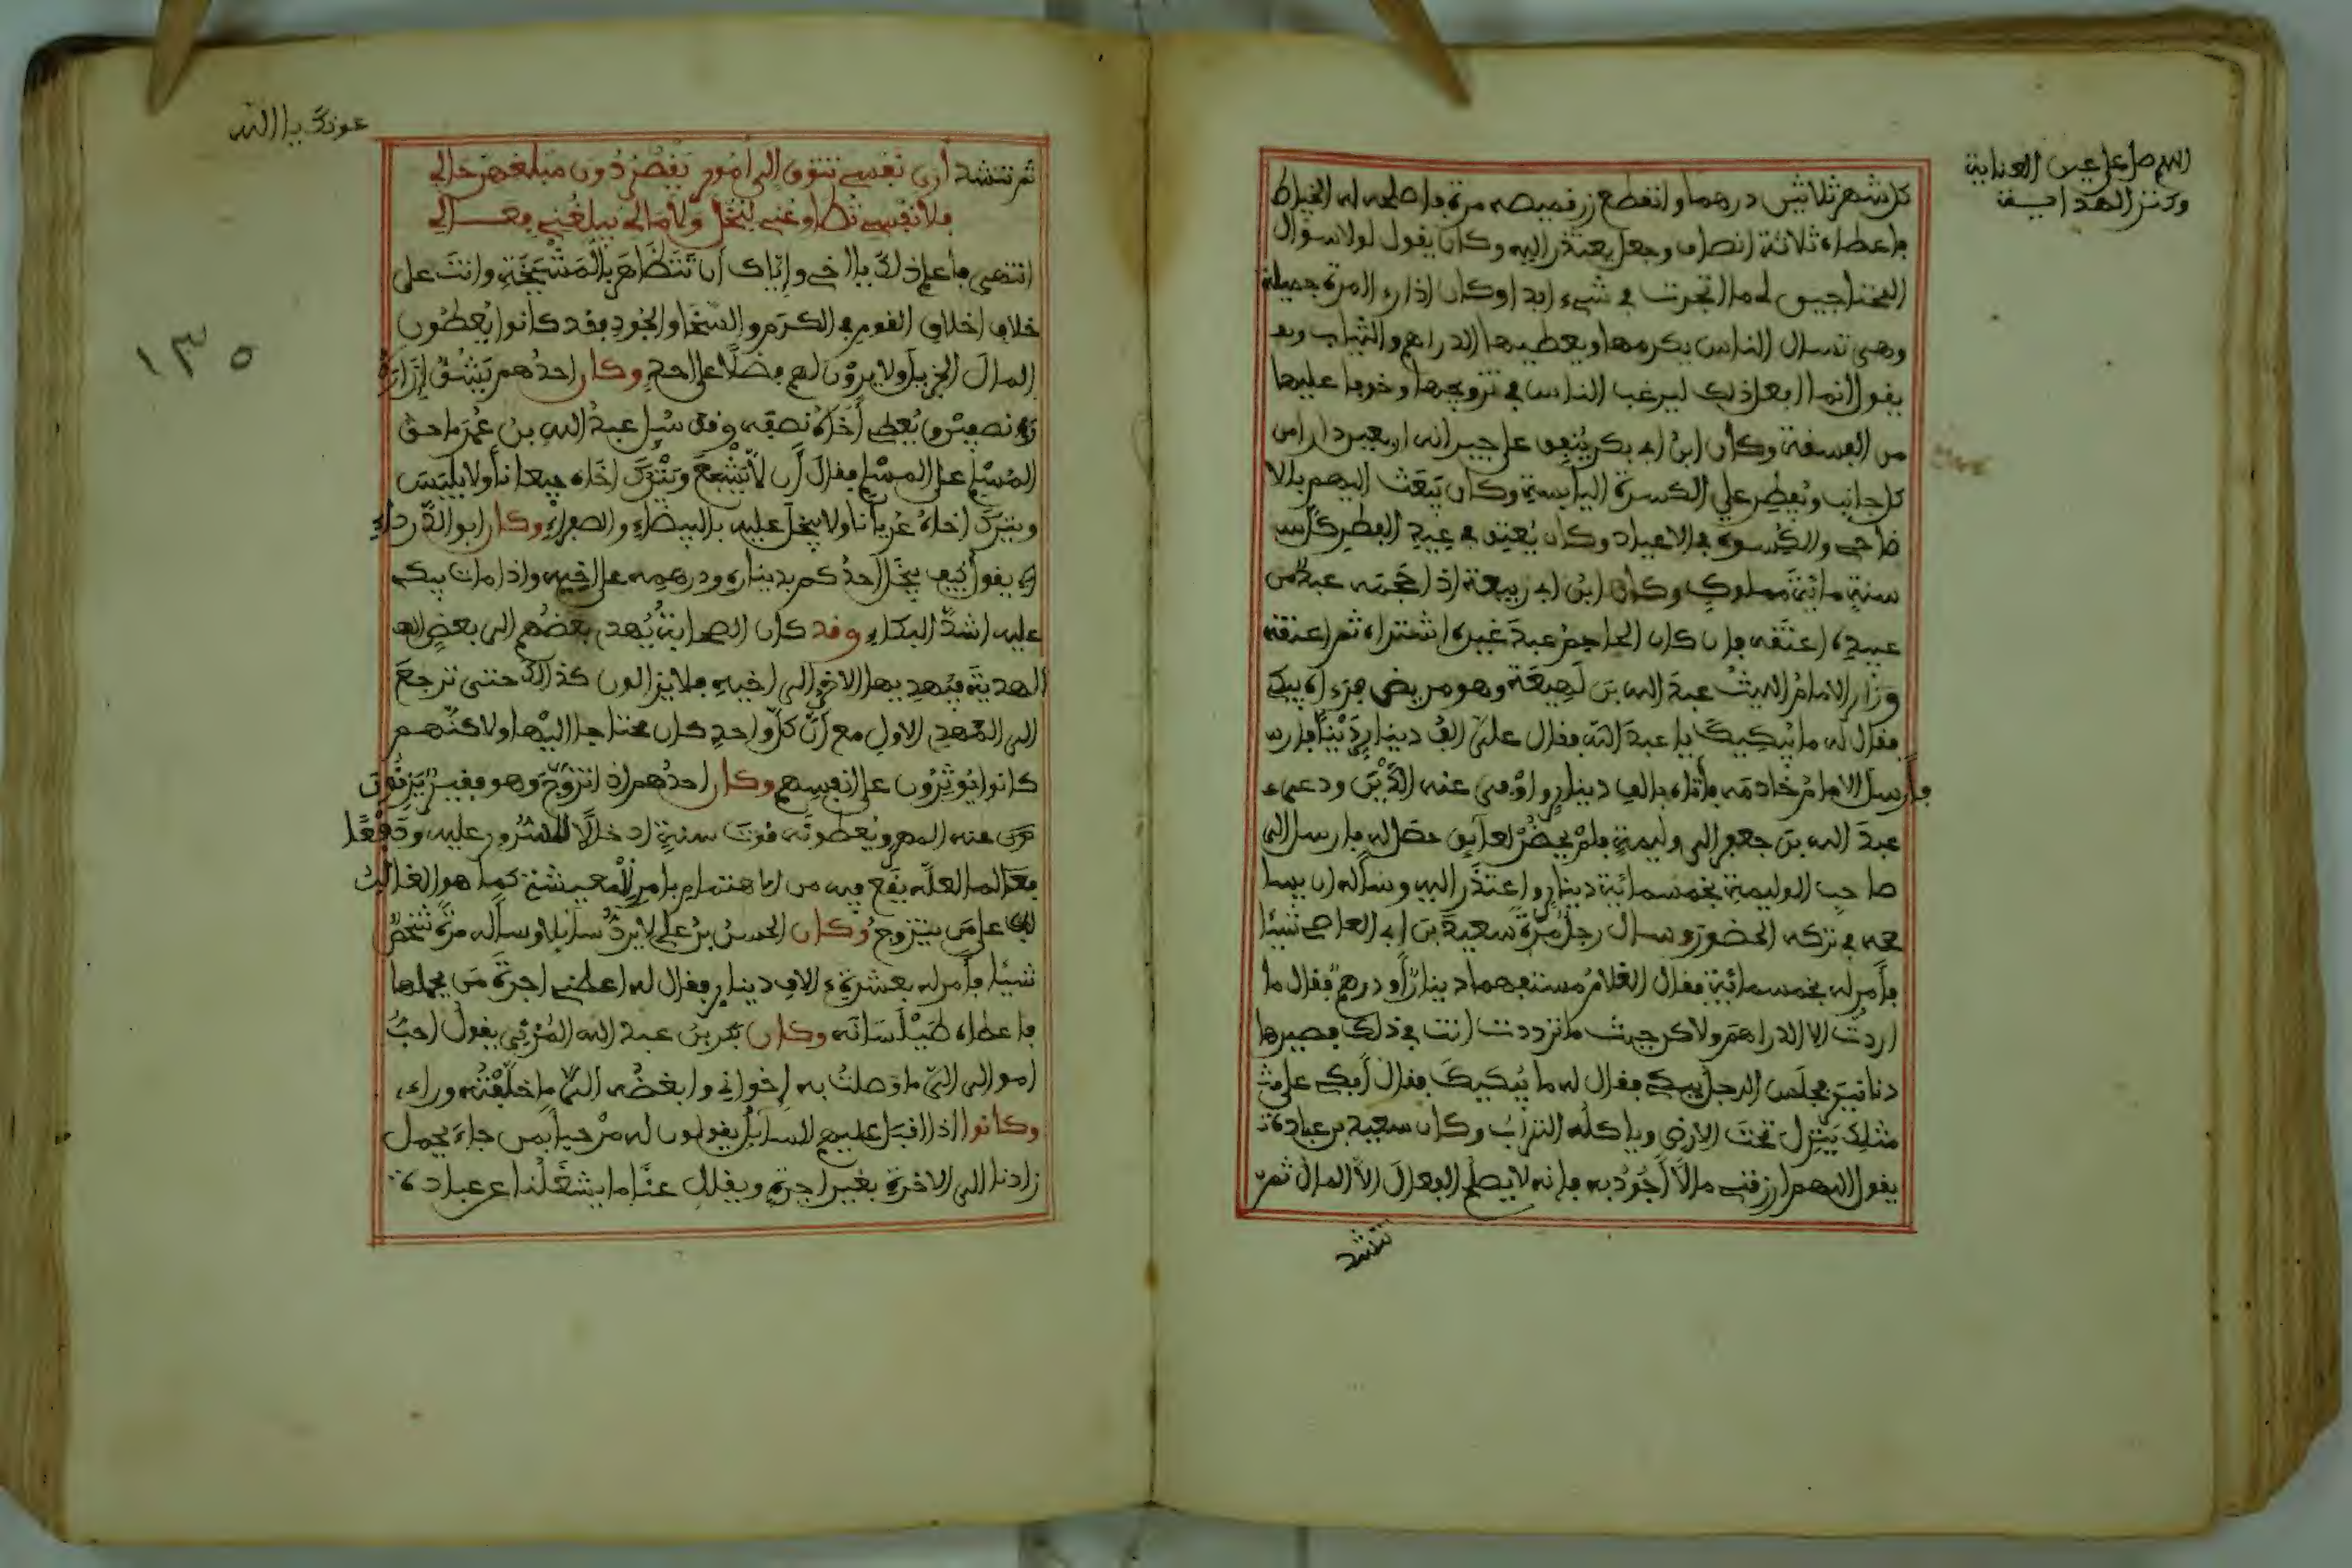 اللهم صل على عين العناية
وكنز الهداية
كل شهر ثلاثين درهما وانقطع زر قميصه مرة فاصلحه له الخياط
فاعطاه ثلاثة انصاف وجعل يعتذر اليه وكان يقول لولا سؤال
المحتاجين لي ما اتجرت في شيء ابدا وكان اذا رءا امرة جميلة
وهي تسال الناس يكرمها ويعطيها الدراهم والثياب و
يقول انما افعل ذلك ليرغب الناس في تزويجها وخوفا عليها
من الفسقة وكان ابن ابي بكر ينفق على جيرانه اربعين دارا من
كل جانب ويفطر على الكسرة اليابسة وكان يبعث اليهم بالا
ضاحي والكسوة في الاعياد وكان يعتق في عيد الفطر كل
سنة مائة مملوك وكان ابن ابي ربيعة اذا حجمه عبد من
عبيده اعتقه فان كان الحاجم عبد غيره اشتراه ثم اعتقه
وزار الامام الليث عبد الله بن لهيعة وهو مريض فرءاه يبكي
فقال له ما يبكيك يا عبد الله فقال علي الف دينار دينا فارس
فأرسل الامام خادمه فأتاه بالف دينار واوفى عنه الدين ودعي
عبد الله بن جعفر الى وليمة فلم يحضر لعايق حصل له فارسل الى
صاحب الوليمة بخمسمائة دينار واعتذر اليه وسأله ان يسا
محه في تركه الحضور وسال رجل مرة سعيد بن ابي العاصي شيئا
فأمر له بخمسمائة فقال الغلام مستفهما دينارا أو درهم فقال ما
اردت الا الدراهم ولاكن حيث ما ترددت انت في ذلك فصيرها
دنانير فجلس الرجل يبكي فقال له ما يبكيك فقال أبكي على مث
مثلك ينزل تحت الارض وياكله التراب وكان سعيد بن عبادة
يقول اللهم ارزقني مالا أجود به فانه لا يصلح الفعال الا المال ثم
تنشد
عونك يا الله
ثم تنشد أرى نفسي تتوق الى أمور يقصر دون مبلغهن حالي
فلا نفسي تطاوعني لبخل ولا مالي يبلغني فعالي
انتهى فاعلم ذلك يا اخي واياك أن تتظاهر بالمشيخة وانت على
خلاف اخلاق القوم في الكرم والسخا والجود فقد كانوا يعطون
المال الجزيل ولا يرون لهم فضلا على احد وكان احدهم يشق إزاره
نصفين ويعطي أخاه نصفه وقد سيل عبد الله بن عمر ما حق
المسلم على المسلم فقال أن لا يشبع ويترك اخاه جيعانا ولا يلبس
ويترك اخاه عريانا ولا يبخل عليه بالبيضاء والصفراء وكان ابو الدرداء
يقول كيف يبخل احدكم بديناره ودرهمه على اخيه واذا مات يبكي
عليه اشد البكاء وقد كان الصحابة يهدي بعضهم الى بعض
الهدية فيهديها الاخر الى اخيه فلا يزالون كذالك حتى ترجع
الى المهدي الاول مع أن كل واحد كان محتاجا اليها ولاكنهم
كانوا يوثرون على انفسهم وكان احدهم اذا تزوج وهو فقير يزنون
عنه المهر ويعطونه قوت سنة ادخالا للسرور عليه ودفعا
لما لعله يقع فيه من الاهتمام بامر المعيشة كما هو الغالب
على من يتزوج وكان الحسن بن علي لا يرد سائلا وسأله مرة شخص
شيئا فأمر له بعشرة ءالاف دينار فقال له اعطني اجرة من يحملها
فاعطاه طيلسانه وكان بكر بن عبد الله المزني يقول احب
اموالي التي ما وصلت به إخواني وابغضه الي ما خلفته وراءي
وكانوا اذا اقبل عليهم السائل يقولون له مرحبا بمن جاء يحمل
زادنا الى الاخرة بغير اجرة ويقلل عنا ما يشغلنا عن عبادة
١٣٥